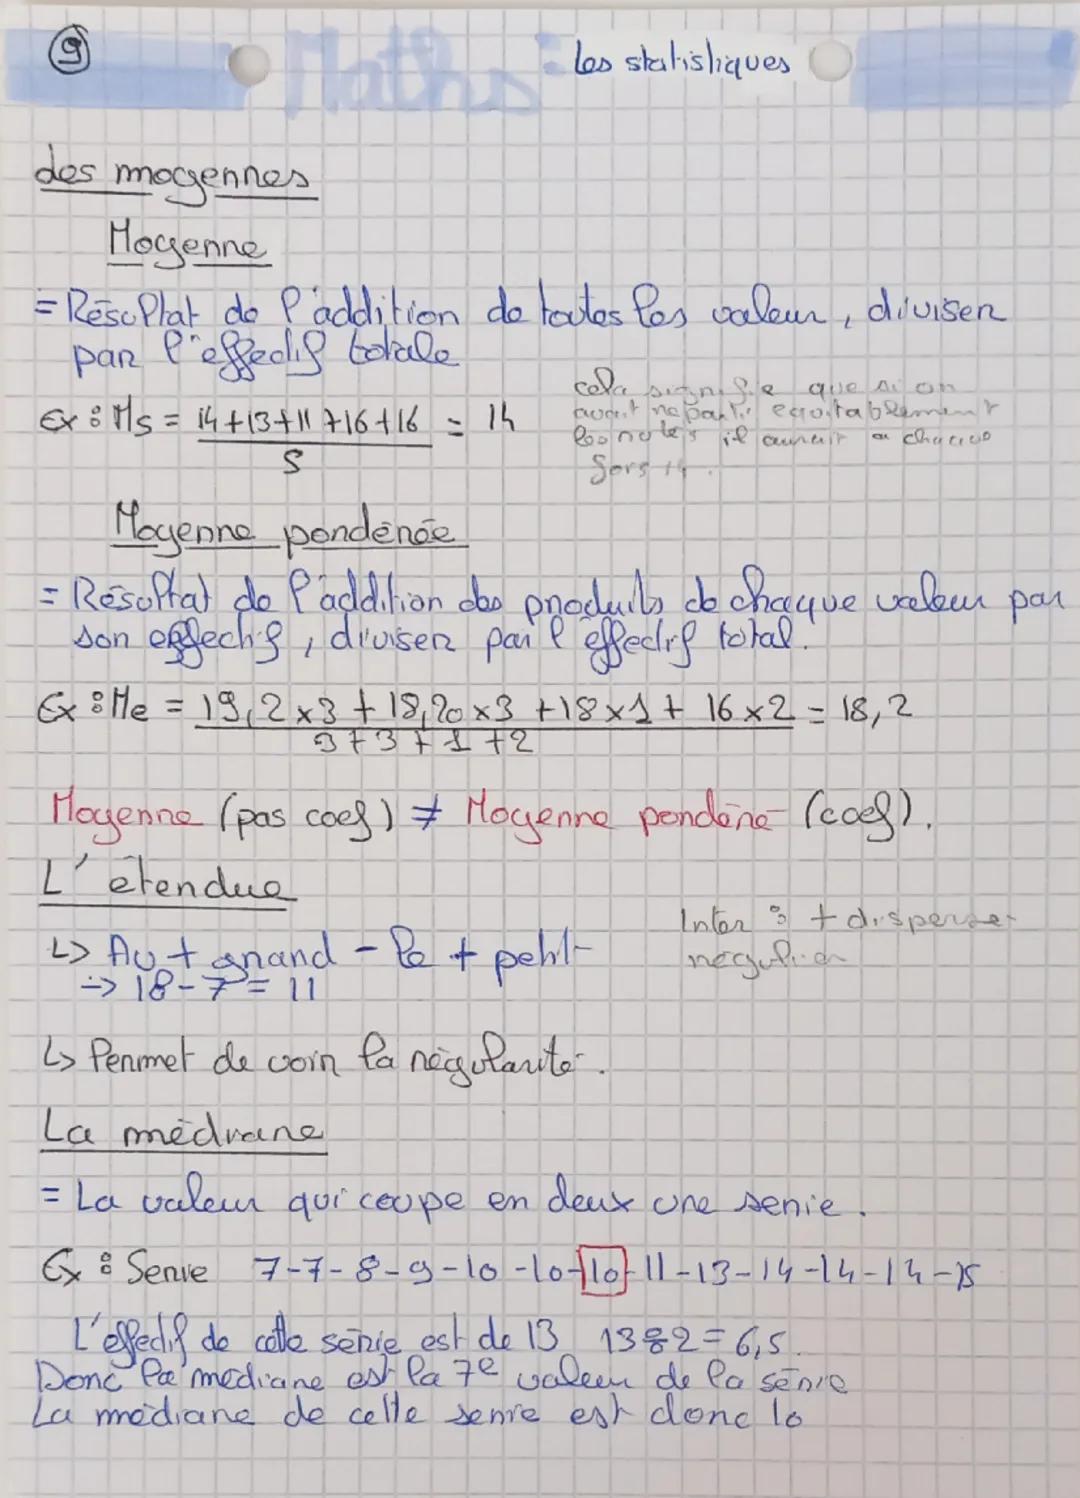 9
Maths : Les statistiques
des moyennes
Moyenne
= Résultat de l'addition de toutes les valeur, diviser
par l'effectif totale
Ex : Ms = 14+13+11+16+16 / 5 = 14
cela signifie que si on
avait réparti équitablement
les notes il aurait eu chaque
fors 14.
Moyenne pondérée
= Résultat de l'addition des produits de chaque valeur par
son effectif, diviser par l'effectif total.
Ex : Me = 19,2x3 + 18,20x3 +18x1+ 16x2 / 3+3+1+2 = 18,2
Moyenne (pas coef) ≠ Moyenne pondéré (coef).
L'étendue
↳ Au + grand - le + petit
-> 18-7 = 11
Inter : + disperser
régulier
↳ Permet de voir la régularité.
La médiane
= La valeur qui coupe en deux une série.
Ex : Série 7-7-8-9-10-10-10-11-13-14-14-14-15
L'effectif de cette série est de 13 13÷2=6,5.
Donc la médiane est la 7e valeur de la série
La médiane de cette série est donc 10